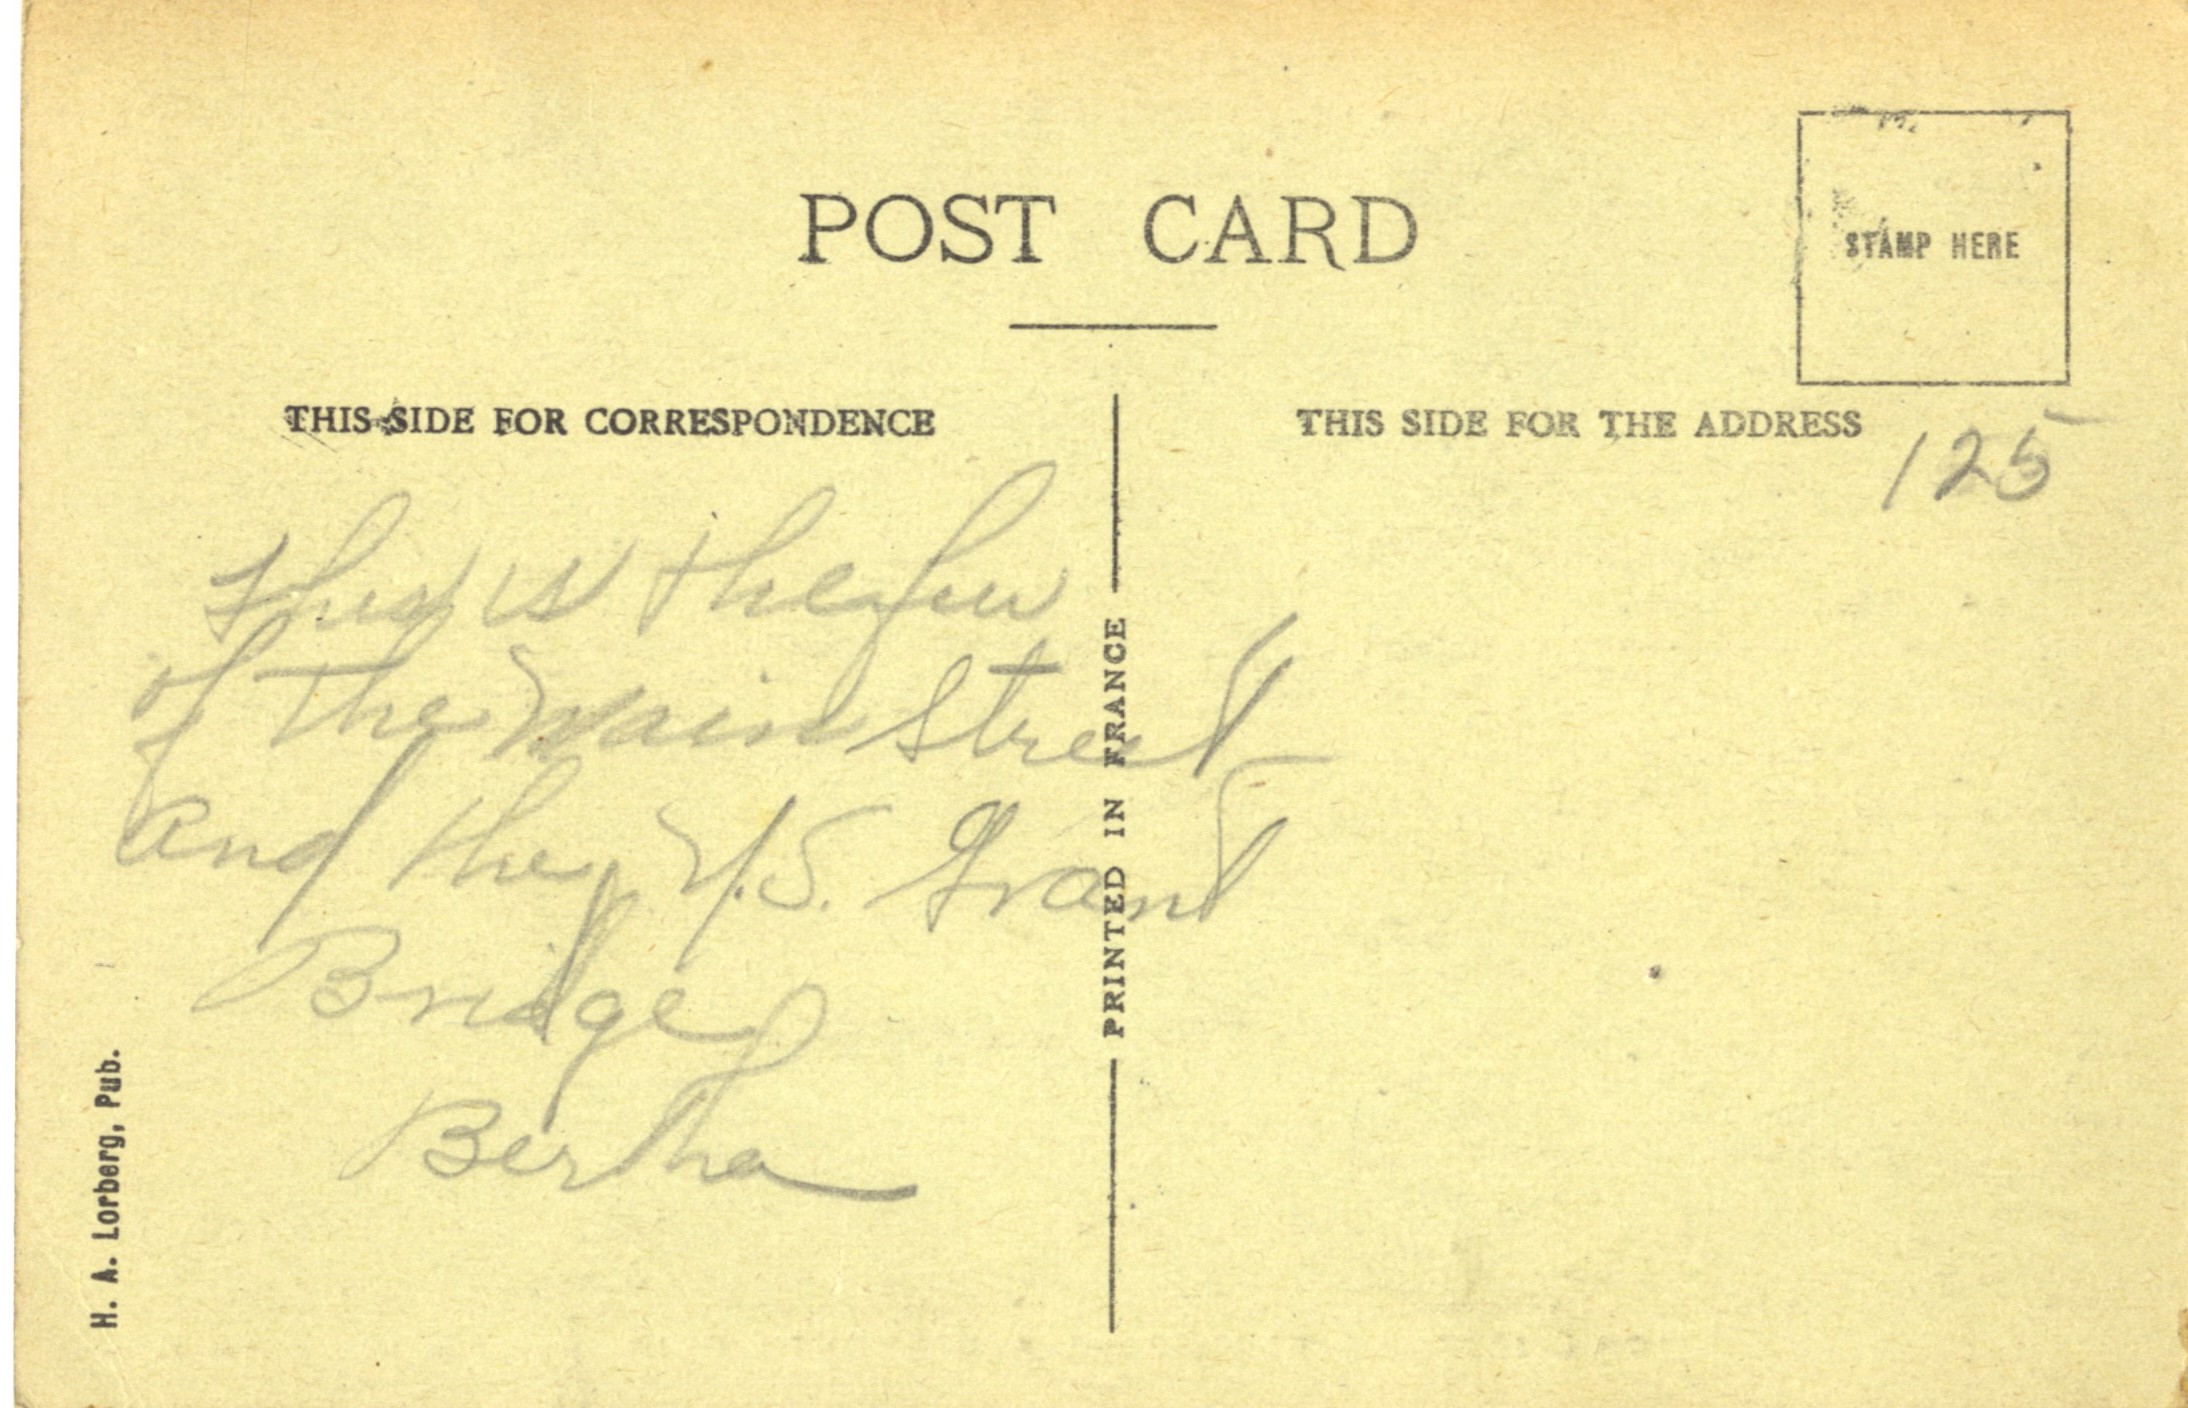 POST CARD
STAMP HERE
THIS SIDE FOR CORRESPONDENCE
THIS SIDE FOR THE ADDRESS
125
This is the
of the Main Street
and the U.S. Grant
Bridge
Bertha
PRINTED IN FRANCE
H. A. Lorberg, Pub.